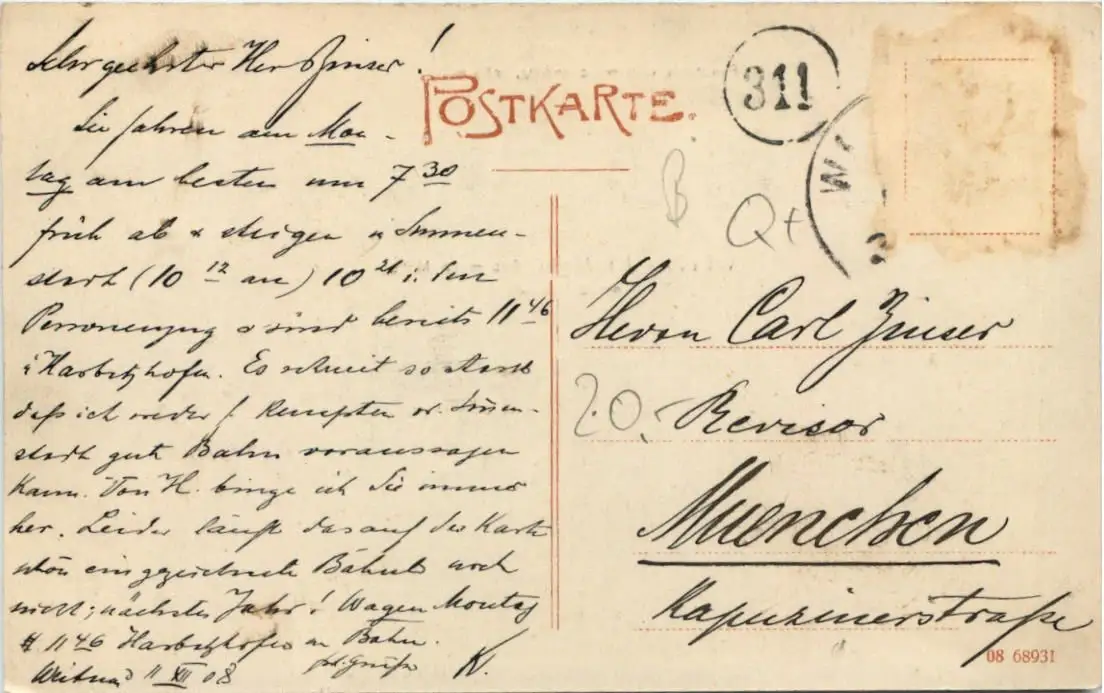 Sehr geehrter Herr Zinser!
Sie fahren am Mon-
tag am besten um 7 30
früh ab & steigen in Immen-
stadt (10 12 an) 10 21 i. den
Personenzug & sind bereits 11 46
i Harbatzhofen. Es schneit so stark
daß ich weder f. Kempten od. Immen-
stadt gute Bahn voraussagen
kann. Von H. bringe ich Sie immer
her. Leider läuft das auf der Karte
schön eingezeichnete Bähnle noch
nicht; nächstes Jahr! Wagen Montag
11 46 Harbatzhofen a Bahn.
Weitnau 11 XII 08 Gruß K.
POSTKARTE.
311
W
B
Q+
Herrn Carl Zinser
20.
Revisor
Muenchen
Kapuzinerstraße
08 68931